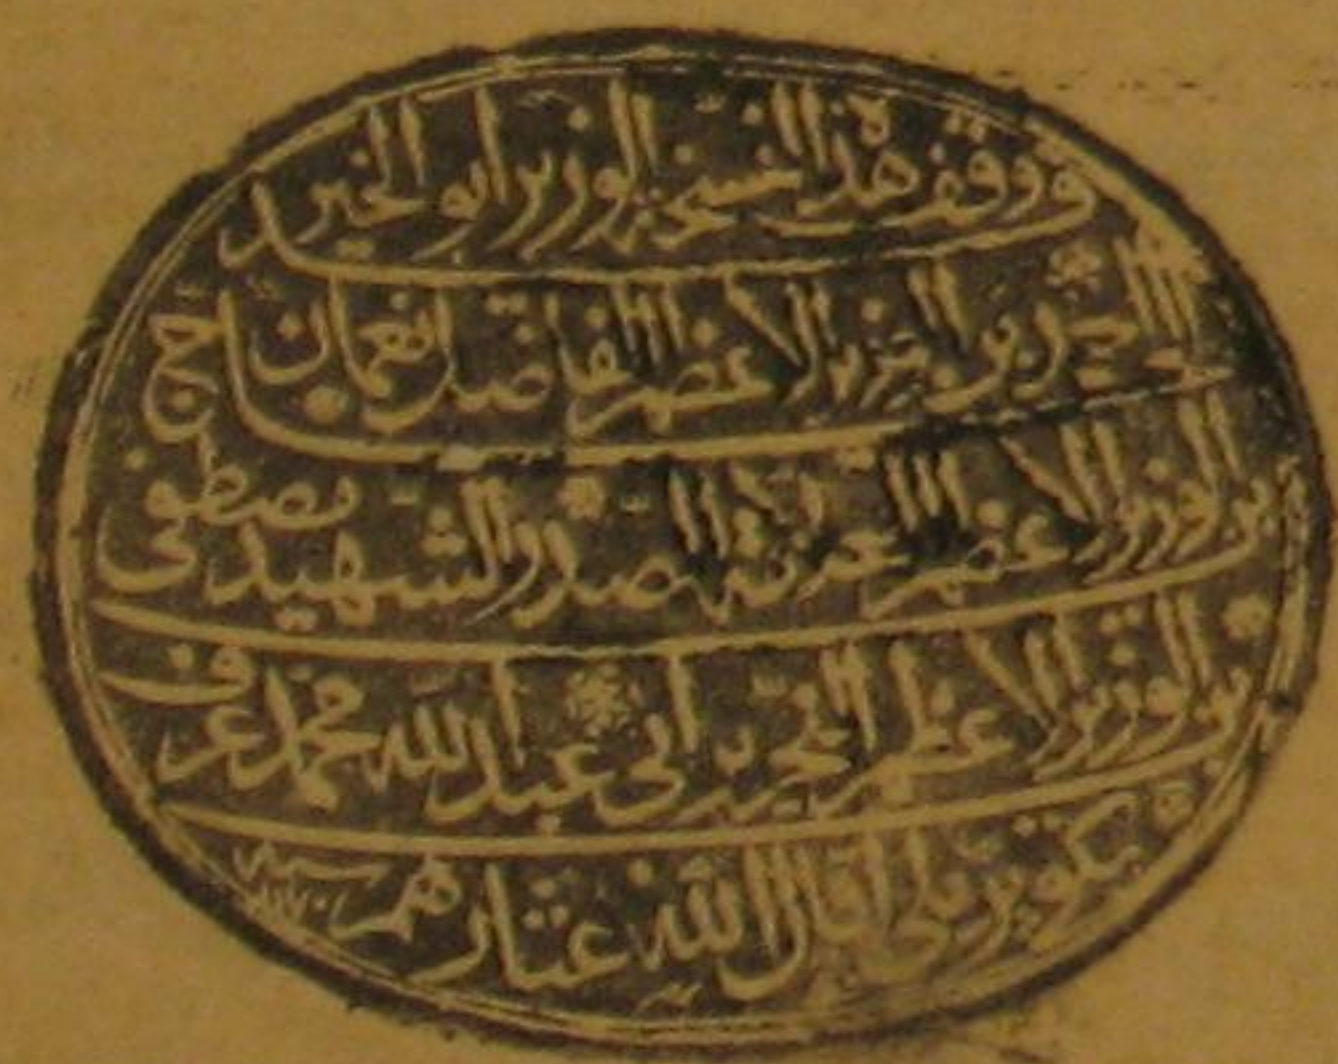 قد وقف هذه النسخة الوزير ابو الخير
الحاج احمد بن الوزير الاعظم الفاضل نعمان
بن الوزير الاعظم العلامة الصدر الشهيد مصطفى
بن الوزير الاعظم النحرير ابى عبد الله محمد عرف
بكوپريلى اقال الله عثارهم سنة